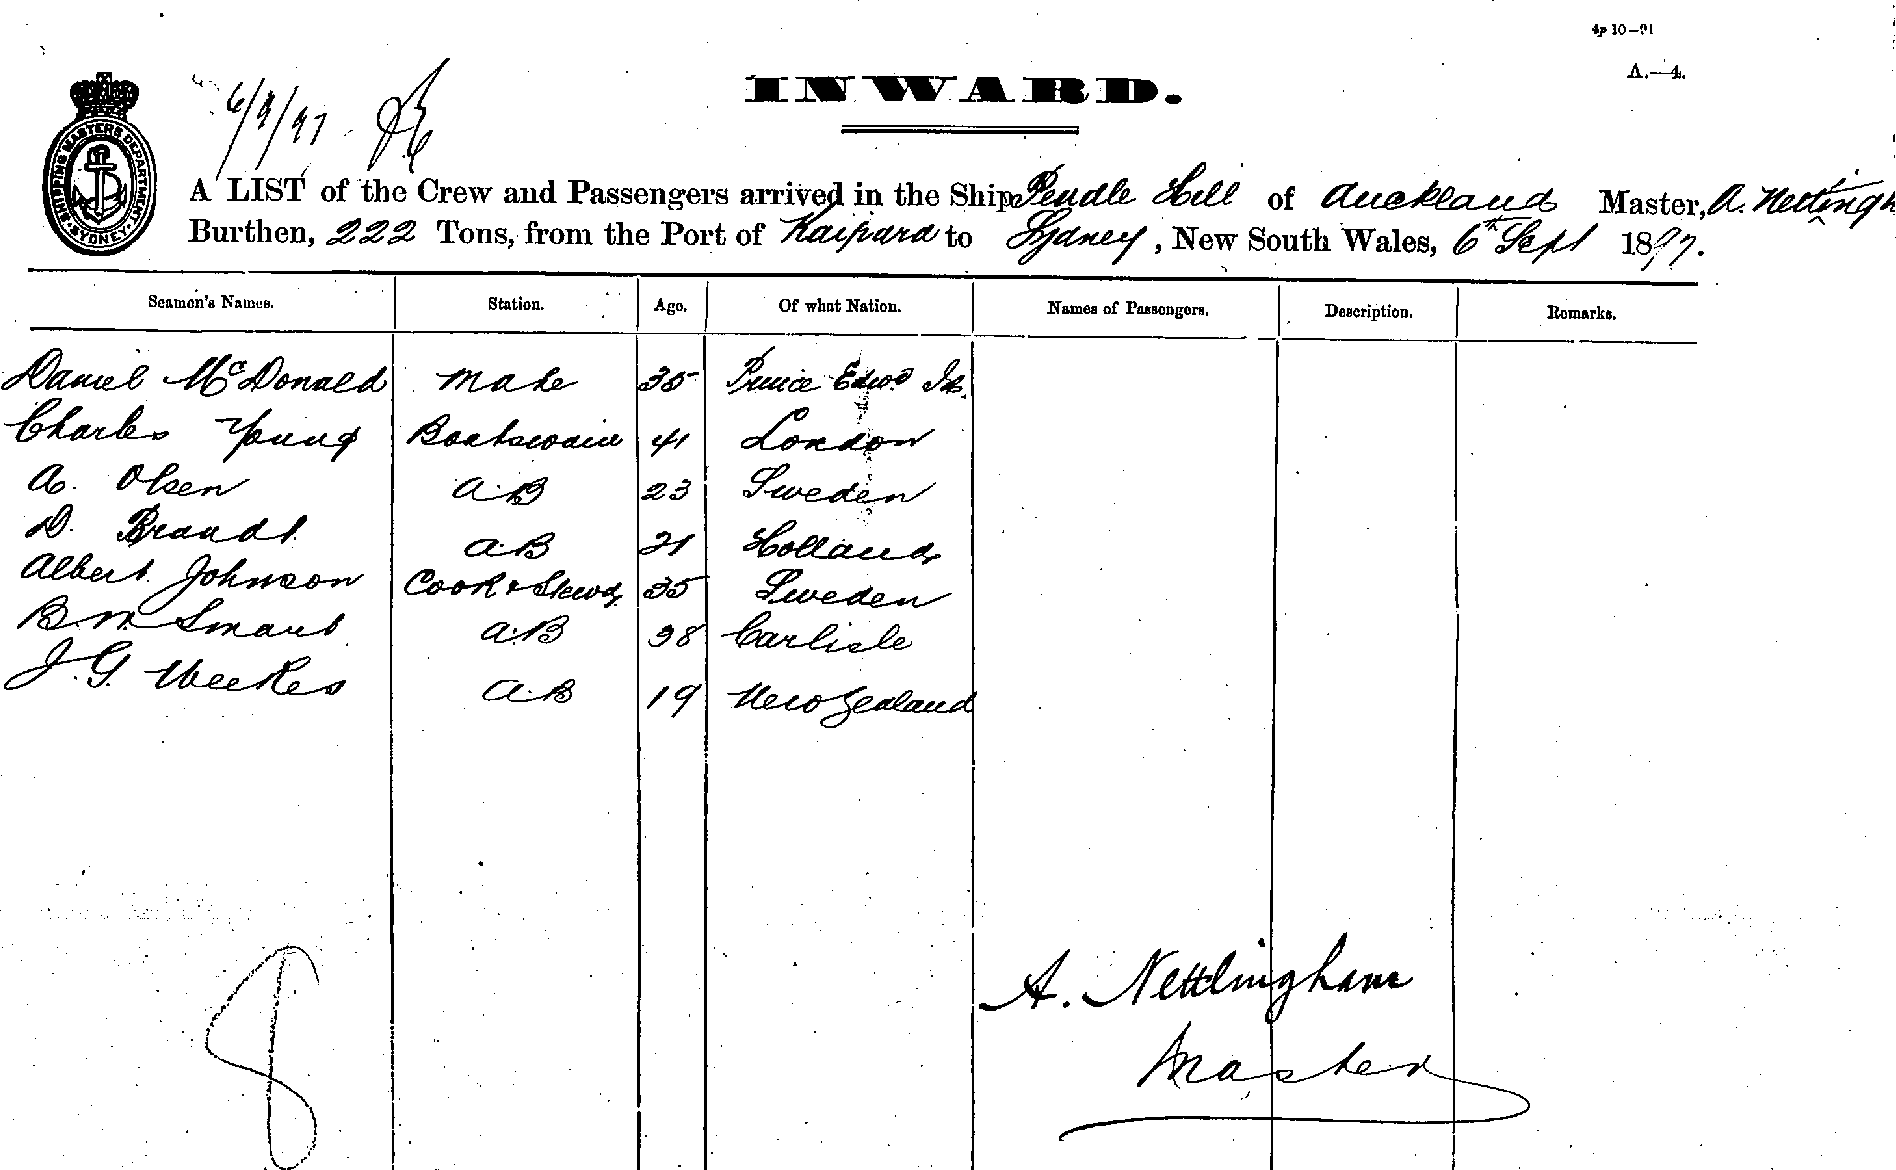 4p 10–91
A.—4.
6/9/97
INWARD.
SHIPPING MASTERS DEPARTMENT SYDNEY
A LIST of the Crew and Passengers arrived in the Ship Pendle Hill of Auckland Master, A. Nettlingh
Burthen, 222 Tons, from the Port of Kaipara to Sydney, New South Wales, 6th Sept 1897.
Seamen's Names. Station. Age. Of what Nation. Names of Passengers. Description. Remarks.
Daniel McDonald Mate 35 Prince Edwd Is.
Charles Young Boatswain 41 London
A. Olsen A.B 23 Sweden
D. Brandt A.B 21 Holland
Albert Johnson Cook & Stewd 35 Sweden
B. W. Smart A.B 38 Carlisle
J. G. Weekes A.B 19 New Zealand
8
A. Nettlingham
Master